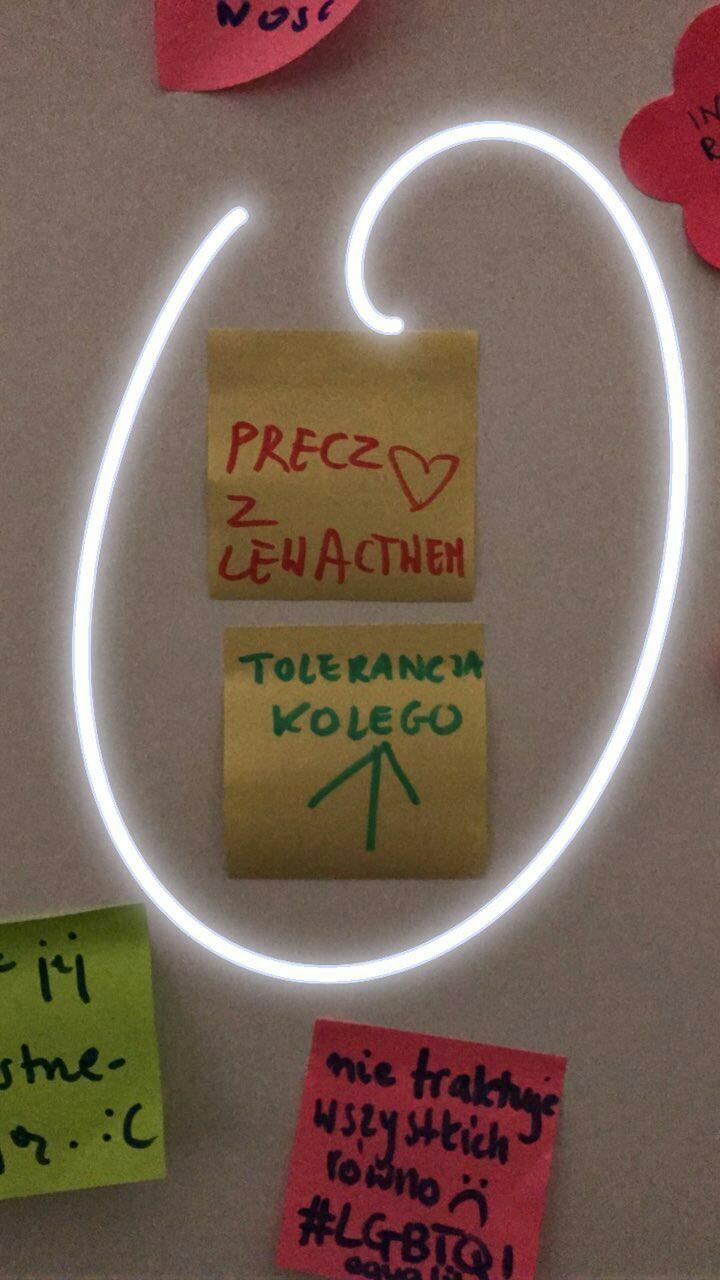 NOŚĆ
IN
R
PRECZ
Z
LEWACTWEM
TOLERANCJA
KOLEGO
jej
stne-
. :C
nie traktuje
wszystkich
równo :(
#LGBTQ!